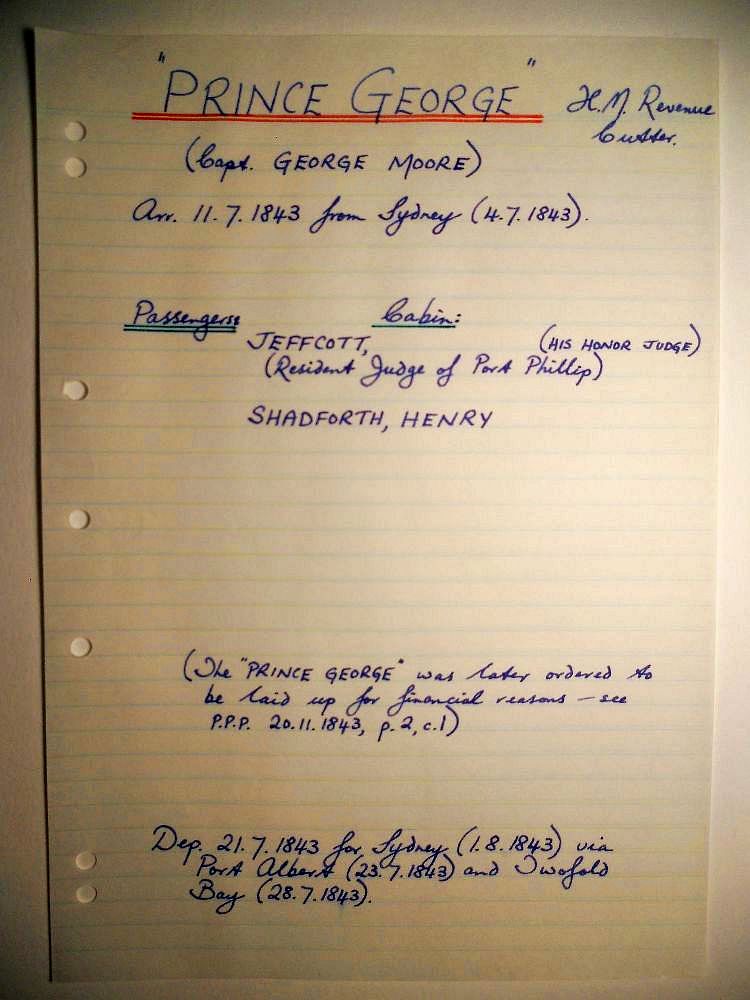 "PRINCE GEORGE" H.M. Revenue
Cutter.
(Capt. GEORGE MOORE)
Arr. 11.7.1843 from Sydney (4.7.1843).
Passengers: Cabin:
JEFFCOTT, (HIS HONOR JUDGE)
(Resident Judge of Port Phillip)
SHADFORTH, HENRY
(The "PRINCE GEORGE" was later ordered to
be laid up for financial reasons – see
P.P.P. 20.11.1843, p.2, c.1)
Dep. 21.7.1843 for Sydney (1.8.1843) via
Port Albert (23.7.1843) and Twofold
Bay (28.7.1843).